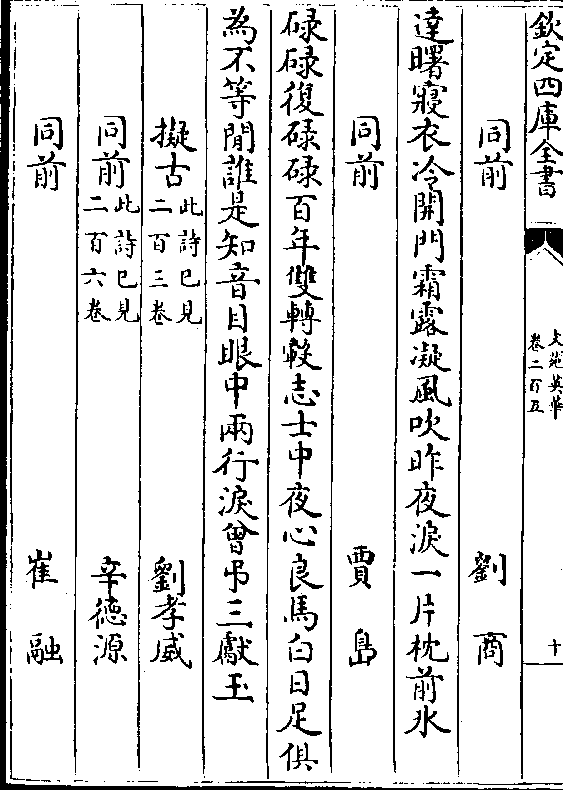 欽定四庫全書
文苑英華
卷二百五
十
同前 劉商
達曙寢衣冷開門霜露凝風吹昨夜淚一片枕前氷
同前 賈島
碌碌復碌碌百年雙轉轂志士中夜心良馬白日足俱
為不等閒誰是知音目眼中兩行淚曾弔三獻玉
擬古 此詩已見二百三卷 劉孝威
同前 此詩已見二百六卷 辛德源
同前 崔融